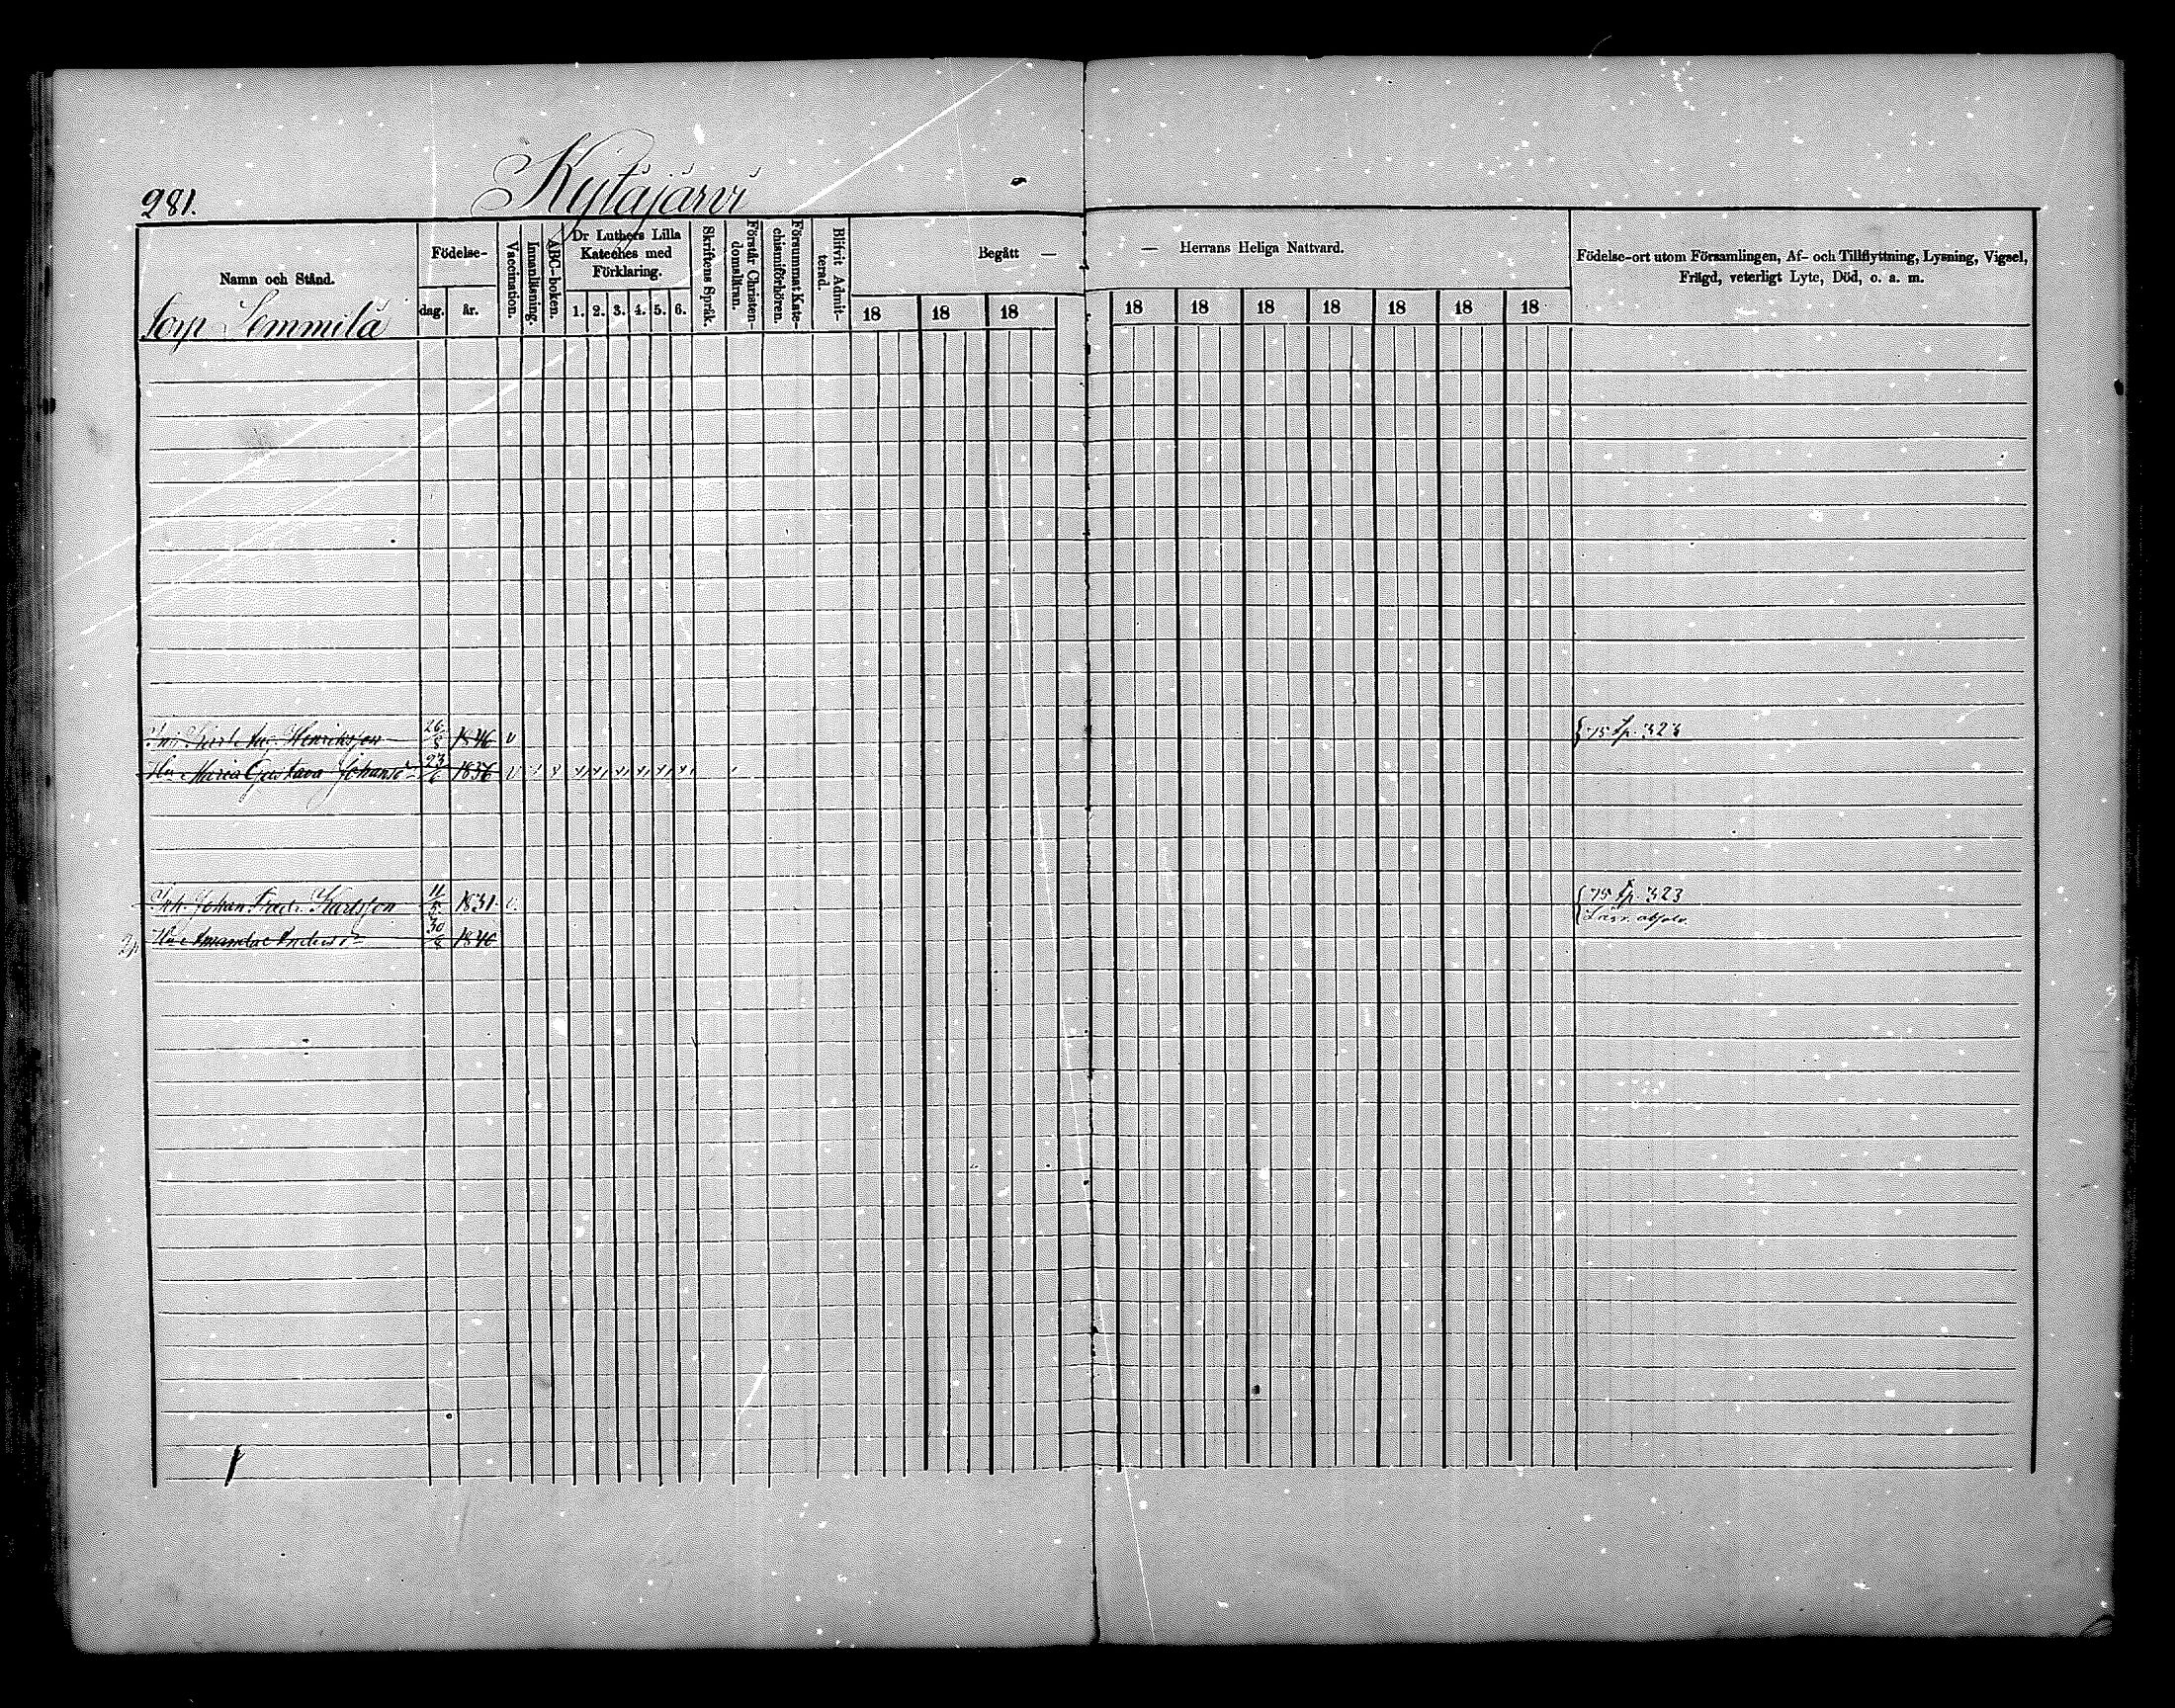 281. Kytäjärvi
Namn och Stånd.
Födelse-
dag. år.
Vaccination.
Innanläsning.
ABC-boken.
Dr Luthers Lilla
Kateches med
Förklaring.
1. 2. 3. 4. 5. 6.
Skriftens Språk.
Förstår Christen-
domslären.
Försummat Kate-
chismiförhören.
Blifvit Admit-
terad.
Begått —
18 18 18
— Herrans Heliga Nattvard.
18 18 18 18 18 18 18
Födelse-ort utom Församlingen, Af- och Tillflyttning, Lysning, Vigsel,
Frägd, veterligt Lyte, Död, o. a. m.
Torp Sommilä
Henriksson 26/8 1846 v { 75 Sp. 323
Hu Maria Gustava Johansd 23/6 1836 v
Inh. Johan Fredr. Karlsson 11/5 1831 v. { 75 Sp. 323
Hu Amanda Andersd 30/8 1840